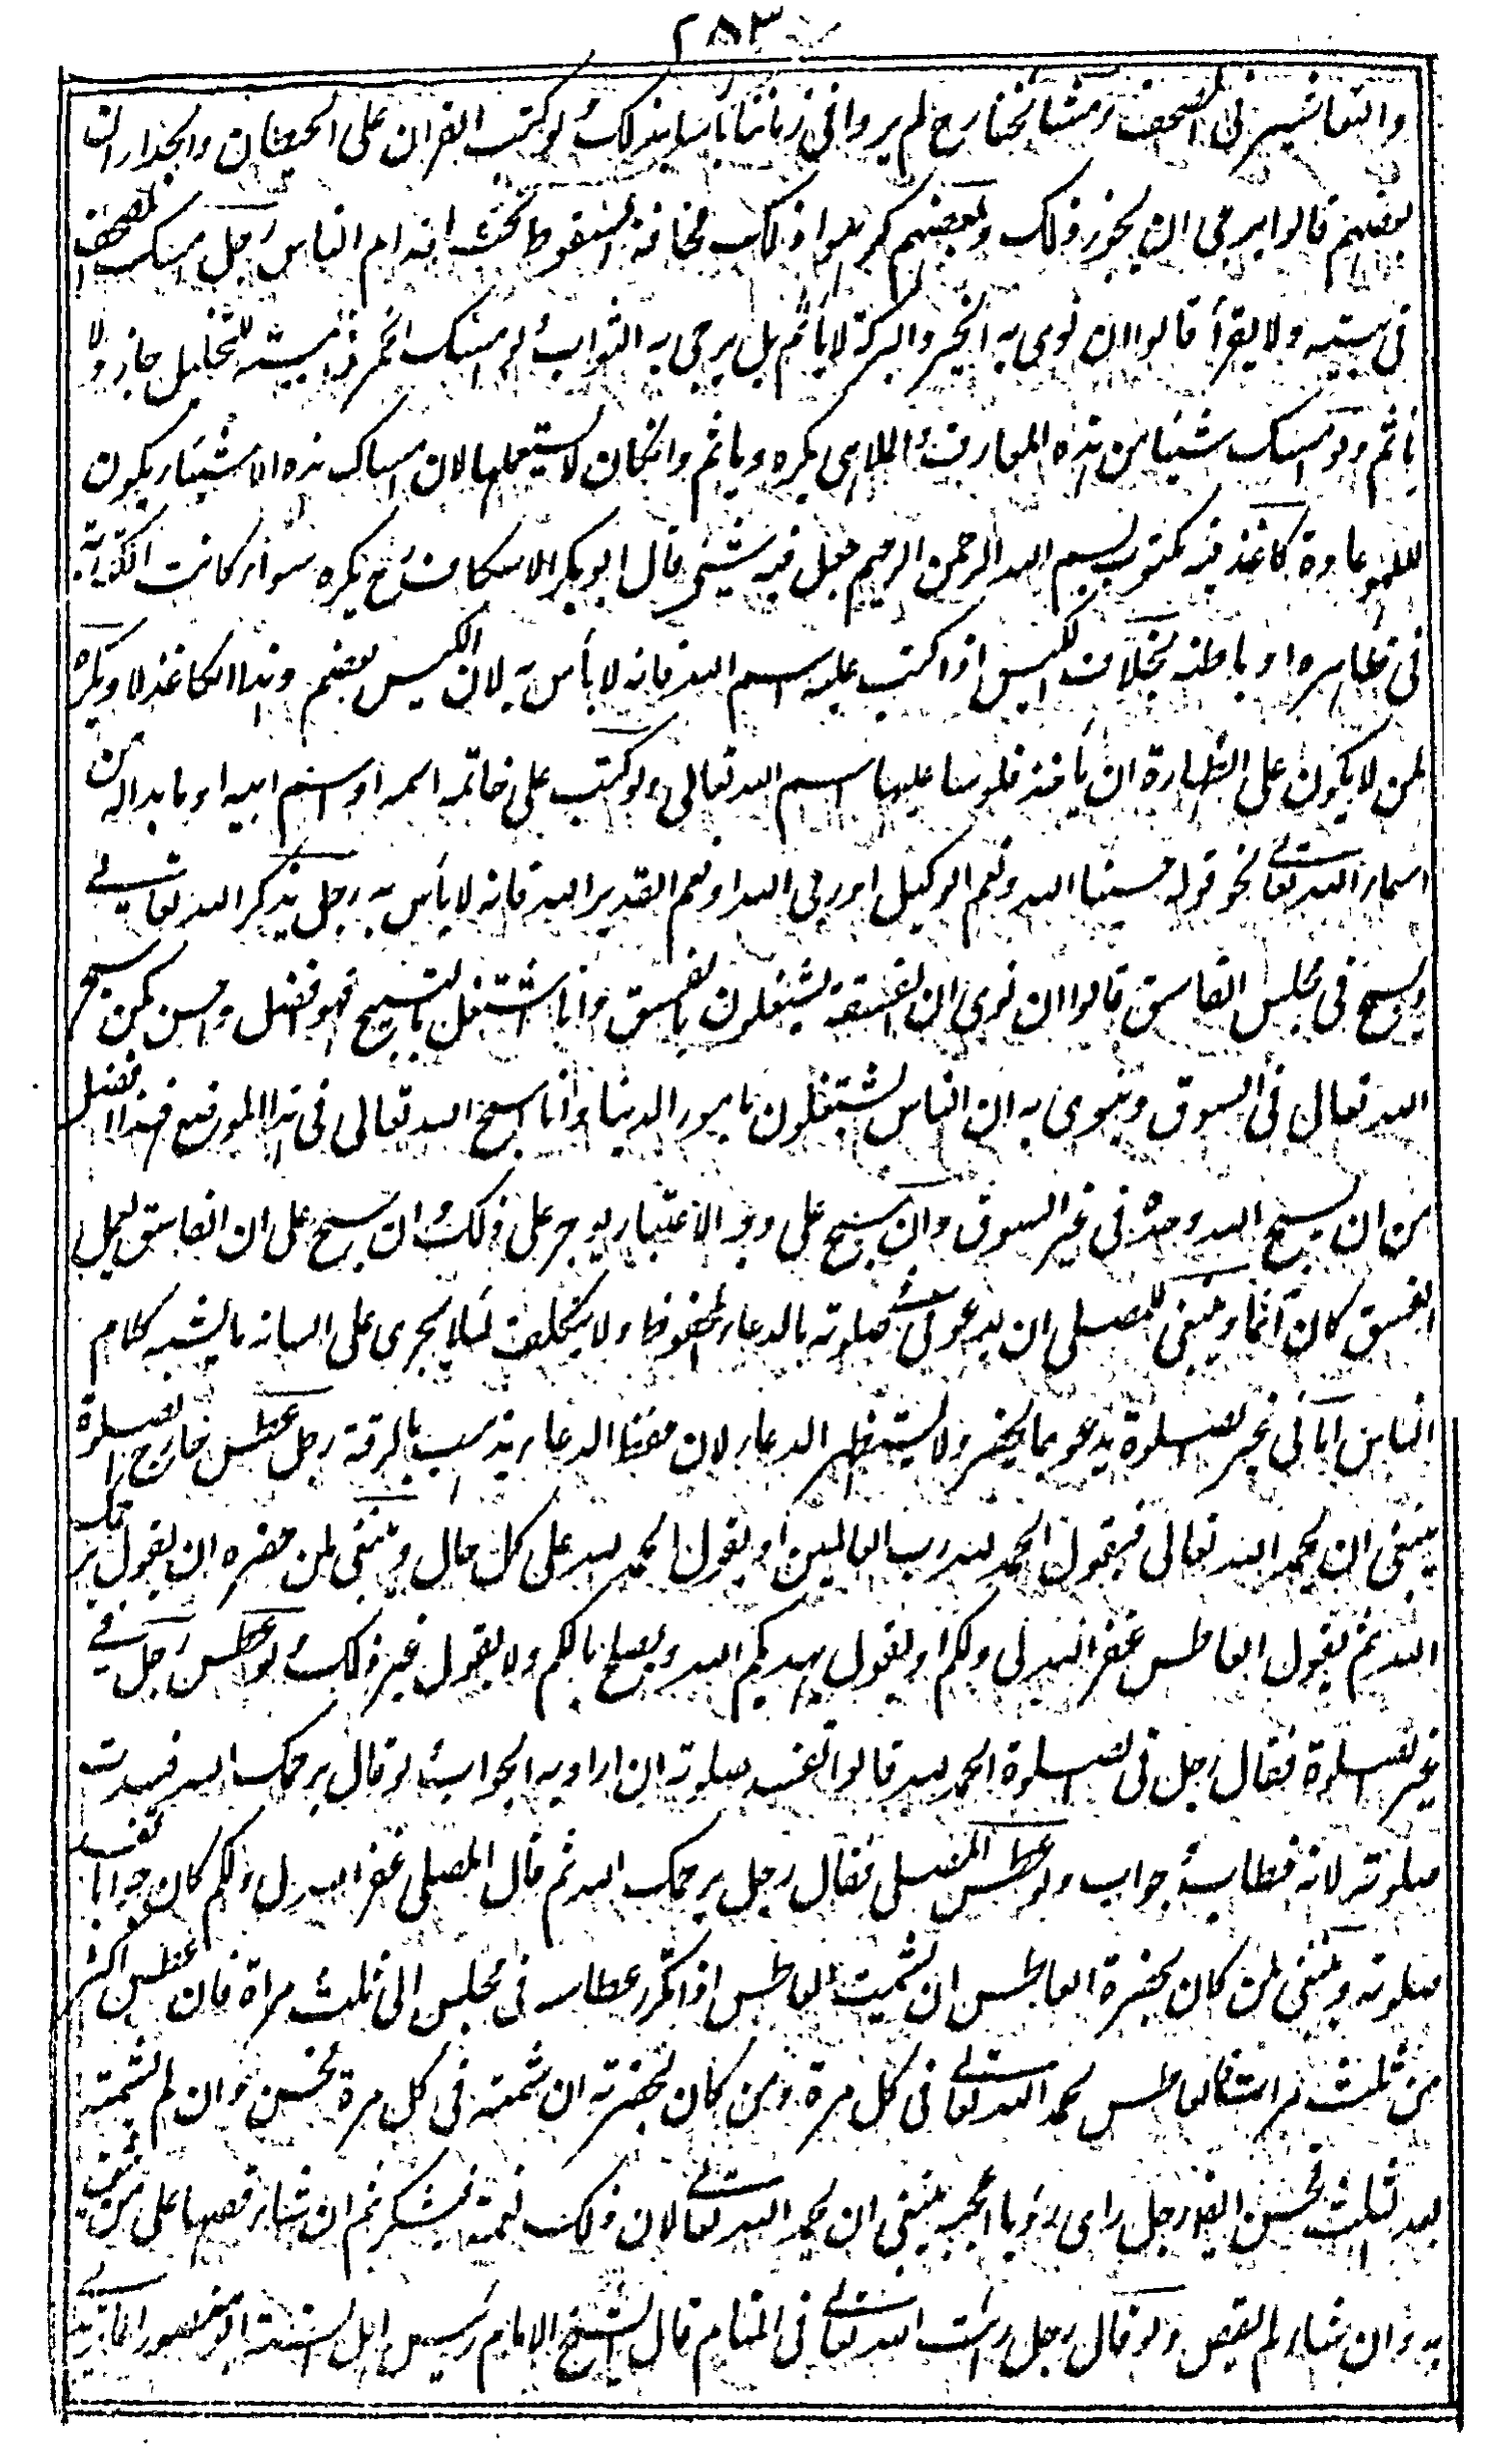 ٢٨٣
والتعاشير فى المصحف ومشائخنا رح لم يروا فى زماننا بأسا بذلك ولو كتب القران على الحيطان والجدران
بعضهم قالوا يرجى ان يجوز ذلك وبعضهم كرهوا ذلك مخافة السقوط تحت اقدام الناس رجل امسك المصحف
فى بيته ولا يقرأ قالوا ان نوى به الخير والبركة لا يأثم بل يرجى به الثواب ولو امسك الخمر فى بيته للتخليل جاز ولا
يأثم ولو امسك شيئا من هذه المعازف والملاهى يكره ويأثم وان كان لا يستعملها لان امساك هذه الاشياء يكون
للهو عادة كاغذ فيه مكتوب بسم الله الرحمن الرحيم جعل فيه شيئ قال ابو بكر الاسكاف رح يكره سواء كانت الكتابة
فى ظاهره او باطنه بخلاف الكيس اذا كتب عليه اسم الله فانه لا بأس به لان الكيس يعضم وهذا الكاغذ لا ويكره
لمن لا يكون على الطهارة ان يأخذ فلوسا عليها اسم الله تعالى ولو كتب على خاتمه اسمه او اسم ابيه او ما بدا له من
اسماء الله تعالى نحو قوله حسبنا الله ونعم الوكيل او ربى الله او نعم القدير الله فانه لا بأس به رجل يذكر الله تعالى
ويسبح فى مجلس الفاسق قالوا ان نوى ان الفسقة يشتغلون بالفسق وانا اشتغل بالتسبيح فهو افضل واحسن كمن سبح
الله تعالى فى السوق وينوى به ان الناس يشتغلون بامور الدنيا وانا اسبح الله تعالى فى هذا الموضع فهذا افضل
من ان يسبح الله وحده فى غير السوق وان سبح على وجه الاعتبار يوجر على ذلك وان سبح على ان الفاسق يعمل
الفسق كان آثما وينبغى للمصلى ان يدعو فى صلوته بالدعاء المحفوظ ولا يتكلف لئلا يجرى على لسانه ما يشبه كلام
الناس اما فى غير الصلوة يدعو بما يحضر ولا يستظهر الدعاء لان حفظ الدعاء يذهب بالرقة رجل عطس خارج الصلوة
ينبغى ان يحمد الله تعالى فيقول الحمد لله رب العالمين او يقول الحمد لله على كل حال وينبغى لمن حضره ان يقول يرحمك
الله ثم يقول العاطس غفر الله لى ولكم او يقول يهديكم الله ويصلح بالكم ولا يقول غير ذلك ولو عطس رجل فى
غير الصلوة فقال رجل فى الصلوة الحمد لله قالوا تفسد صلوته ان اراد به الجواب ولو قال يرحمك الله فسدت
صلوته لانه خطاب وجواب ولو عطس المصلى فقال رجل يرحمك الله ثم قال المصلى غفر الله لى ولكم كان جوابا تفسد
صلوته وينبغى لمن كان بحضرة العاطس ان تشميت العاطس اذا تكرر عطاسه فى مجلس الى ثلث مراة فان عطس اكثر
من ثلث مرات فالعاطس يحمد الله تعالى فى كل مرة ومن كان بحضرته ان شمته فى كل مرة فحسن وان لم يشمته
بعد ثلث فحسن ايضا رجل راى رؤيا اعجبه ينبغى ان يحمد الله تعالى لان ذلك نعمة فيشكر ثم ان شاء قصها على من يثق
به وان شاء لم يقص ولو قال رجل رأيت الله تعالى فى المنام قال الشيخ الامام رئيس اهل السنة ابو منصور الماتريدى